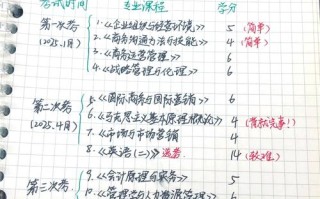 考试时间 专业课程 学分
第一次考
(2025.1月)
1.《企业组织与经营环境》 5 (简单)
2.《商务沟通方法与技能》 4 (简单)
3.《商务运营管理》 6
4.《战略管理与伦理》 6
第二次考
(2025.4月)
5.《国际商务与国际营销》 6
6.《马克思主义基本原理概论》 4
7.《市场与市场营销》 4
8.《英语(二)》选考 14 (较难)
第三次考
9.《会计原理与实务》 5
10.《管理学与人力资源管理》 6